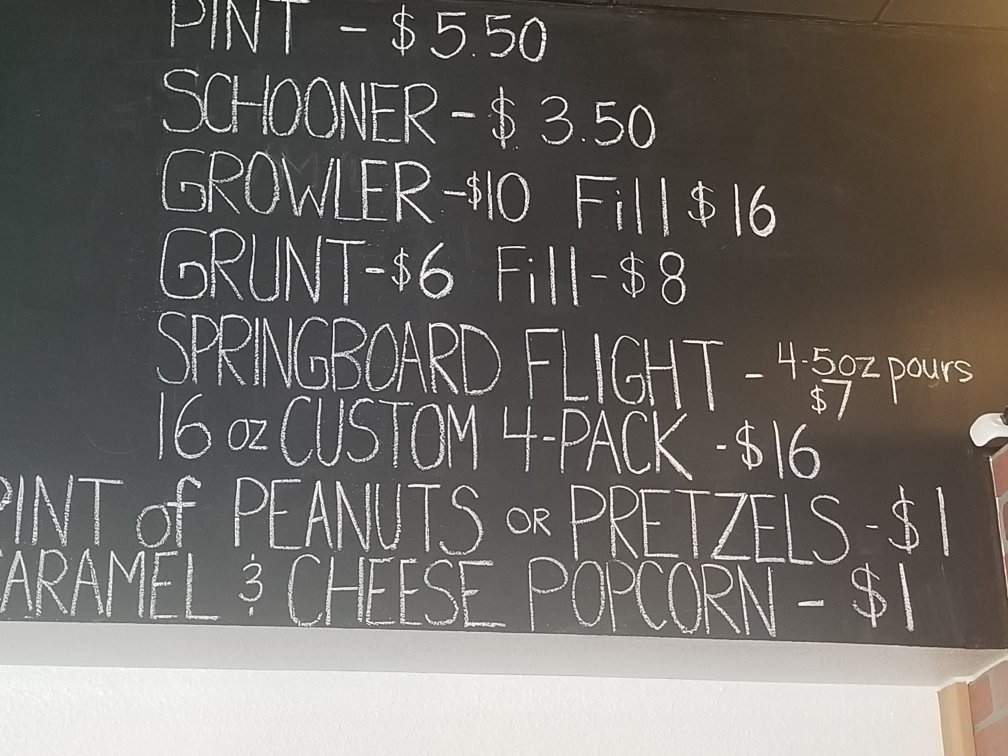 PINT - $5.50
SCHOONER - $3.50
GROWLER - $10 Fill $16
GRUNT - $6 Fill - $8
SPRINGBOARD FLIGHT - 4-5oz pours
$7
16 oz CUSTOM 4-PACK - $16
PINT of PEANUTS OR PRETZELS - $1
CARAMEL & CHEESE POPCORN - $1